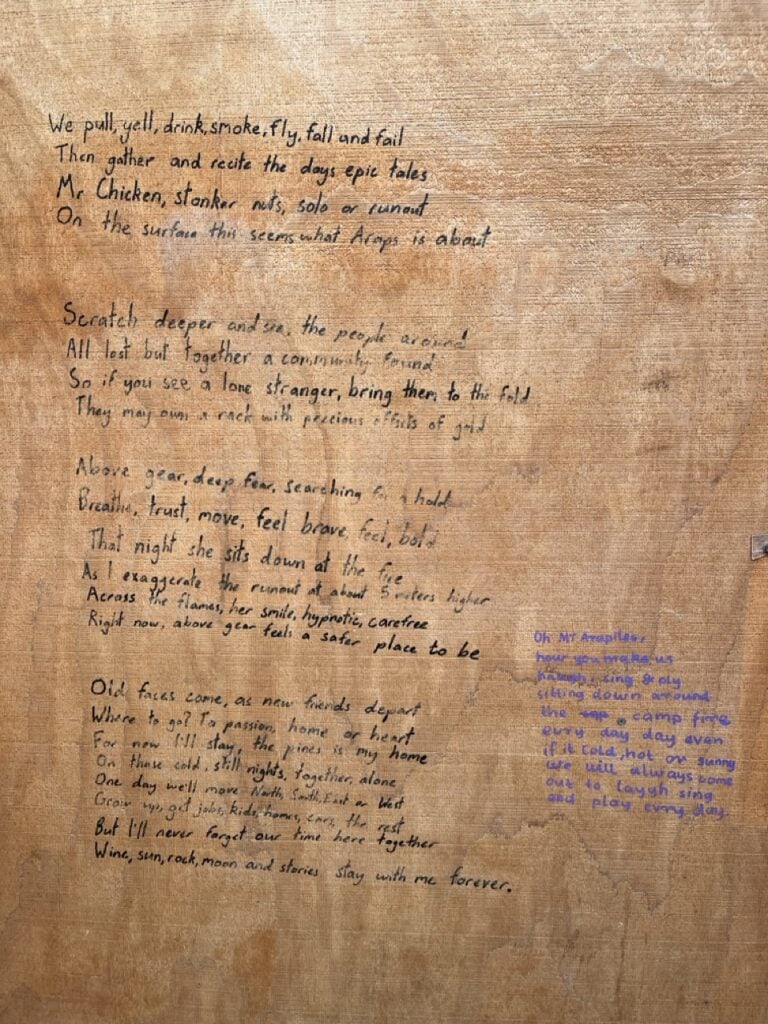 We pull, yell, drink, smoke, fly, fall and fail
Then gather and recite the days epic tales
Mr Chicken, stonker nuts, solo or runout
On the surface this seems what Araps is about
Scratch deeper and see, the people around
All lost but together a community found
So if you see a lone stranger, bring them to the fold
They may own a rack with precious offsets of gold
Above gear, deep fear, searching for a hold
Breathe, trust, move, feel brave, feel, bold
That night she sits down at the fire
As I exaggerate the runout at about 5 meters higher
Across the flames, her smile, hypnotic, carefree
Right now, above gear feels a safer place to be
Old faces come, as new friends depart
Where to go? To passion, home or heart
For now I'll stay, the pines is my home
On those cold, still nights, together, alone
One day we'll move North, South, East or West
Grow up, get jobs, kids, homes, cars, the rest
But I'll never forget our time here together
Wine, sun, rock, moon and stories stay with me forever.
Oh MT Arapiles,
how you make us
sing & ply
sitting down around
the camp fire
evry day day even
if it cold, hot or sunny
we will always come
out to laygh sing
and play evry day.